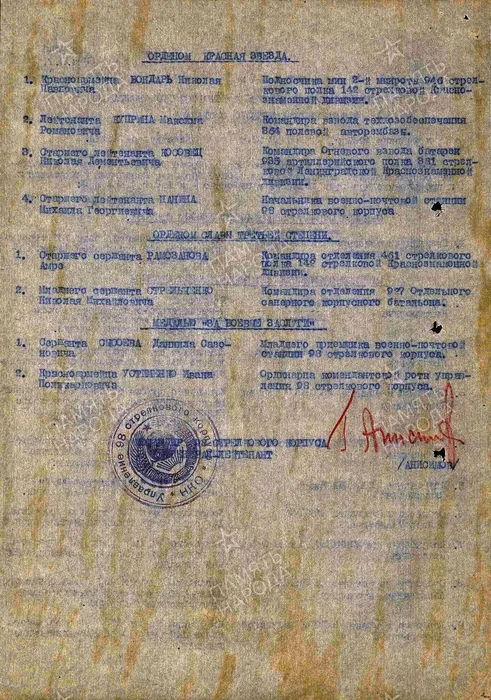 ОРДЕНОМ КРАСНАЯ ЗВЕЗДА.
1. Красноармейца БОНДАРЬ Николая Подносчика мин 2-й минроты 946 стрел-
Павловича кового полка 142 стрелковой Красно-
знаменной дивизии.
2. Лейтенанта КУПРИНА Максима Командира взвода теплообеспечения
Романовича 364 полевой авторембазы.
3. Старшего лейтенанта КОСОВЕЦ Командира Огневого взвода батареи
Николая Дементьевича 935 артиллерийского полка 381 стрел-
ковой Ленинградской Краснознаменной
дивизии.
4. Старшего лейтенанта ПАНИНА Начальника военно-почтовой станции
Михаила Георгиевича 98 стрелкового корпуса
ОРДЕНОМ СЛАВЫ ТРЕТЬЕЙ СТЕПЕНИ.
1. Старшего сержанта РАМАЗАНОВА Командира отделения 461 стрелкового
полка 142 стрелковой Краснознаменной
дивизии.
2. Младшего сержанта СТРЕЛЬТЕНКО Командира отделения Отдельного
Николая Михайловича саперного корпусного батальона.
МЕДАЛЬЮ "ЗА БОЕВЫЕ ЗАСЛУГИ"
1. Сержанта СЫСОЕВА Даниила Сазо- Младшего приемщика военно-почтовой
новича станции 98 стрелкового корпуса.
2. Красноармейца УСТИМЕНКО Ивана Ординарца комендантской роты управ-
Поликарповича ления 98 стрелкового корпуса.
Управление 98 стрелкового корпуса
НКО
КОМАНДИР 98 СТРЕЛКОВОГО КОРПУСА
ГЕНЕРАЛ-ЛЕЙТЕНАНТ
/АНИСИМОВ/
ПАМЯТЬ
НАРОДА